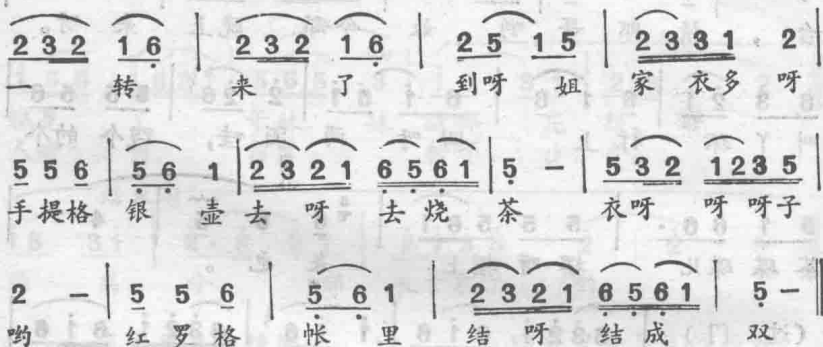 2 3 2 1 6 | 2 3 2 1 6 | 2 5 1 5 | 2 3 3 1 2 |
一 转 来 了 到呀 姐 家 衣多 呀
5 5 6 | 5 6 1 | 2 3 2 1 6 5 6 1 | 5 － | 5 3 2 1 2 3 5 |
手提格 银 壶 去 呀 去 烧 茶 衣呀 呀 呀子
2 － | 5 5 6 | 5 6 1 | 2 3 2 1 6 5 6 1 | 5 － ‖
哟 红 罗 格 帐 里 结 呀 结 成 双